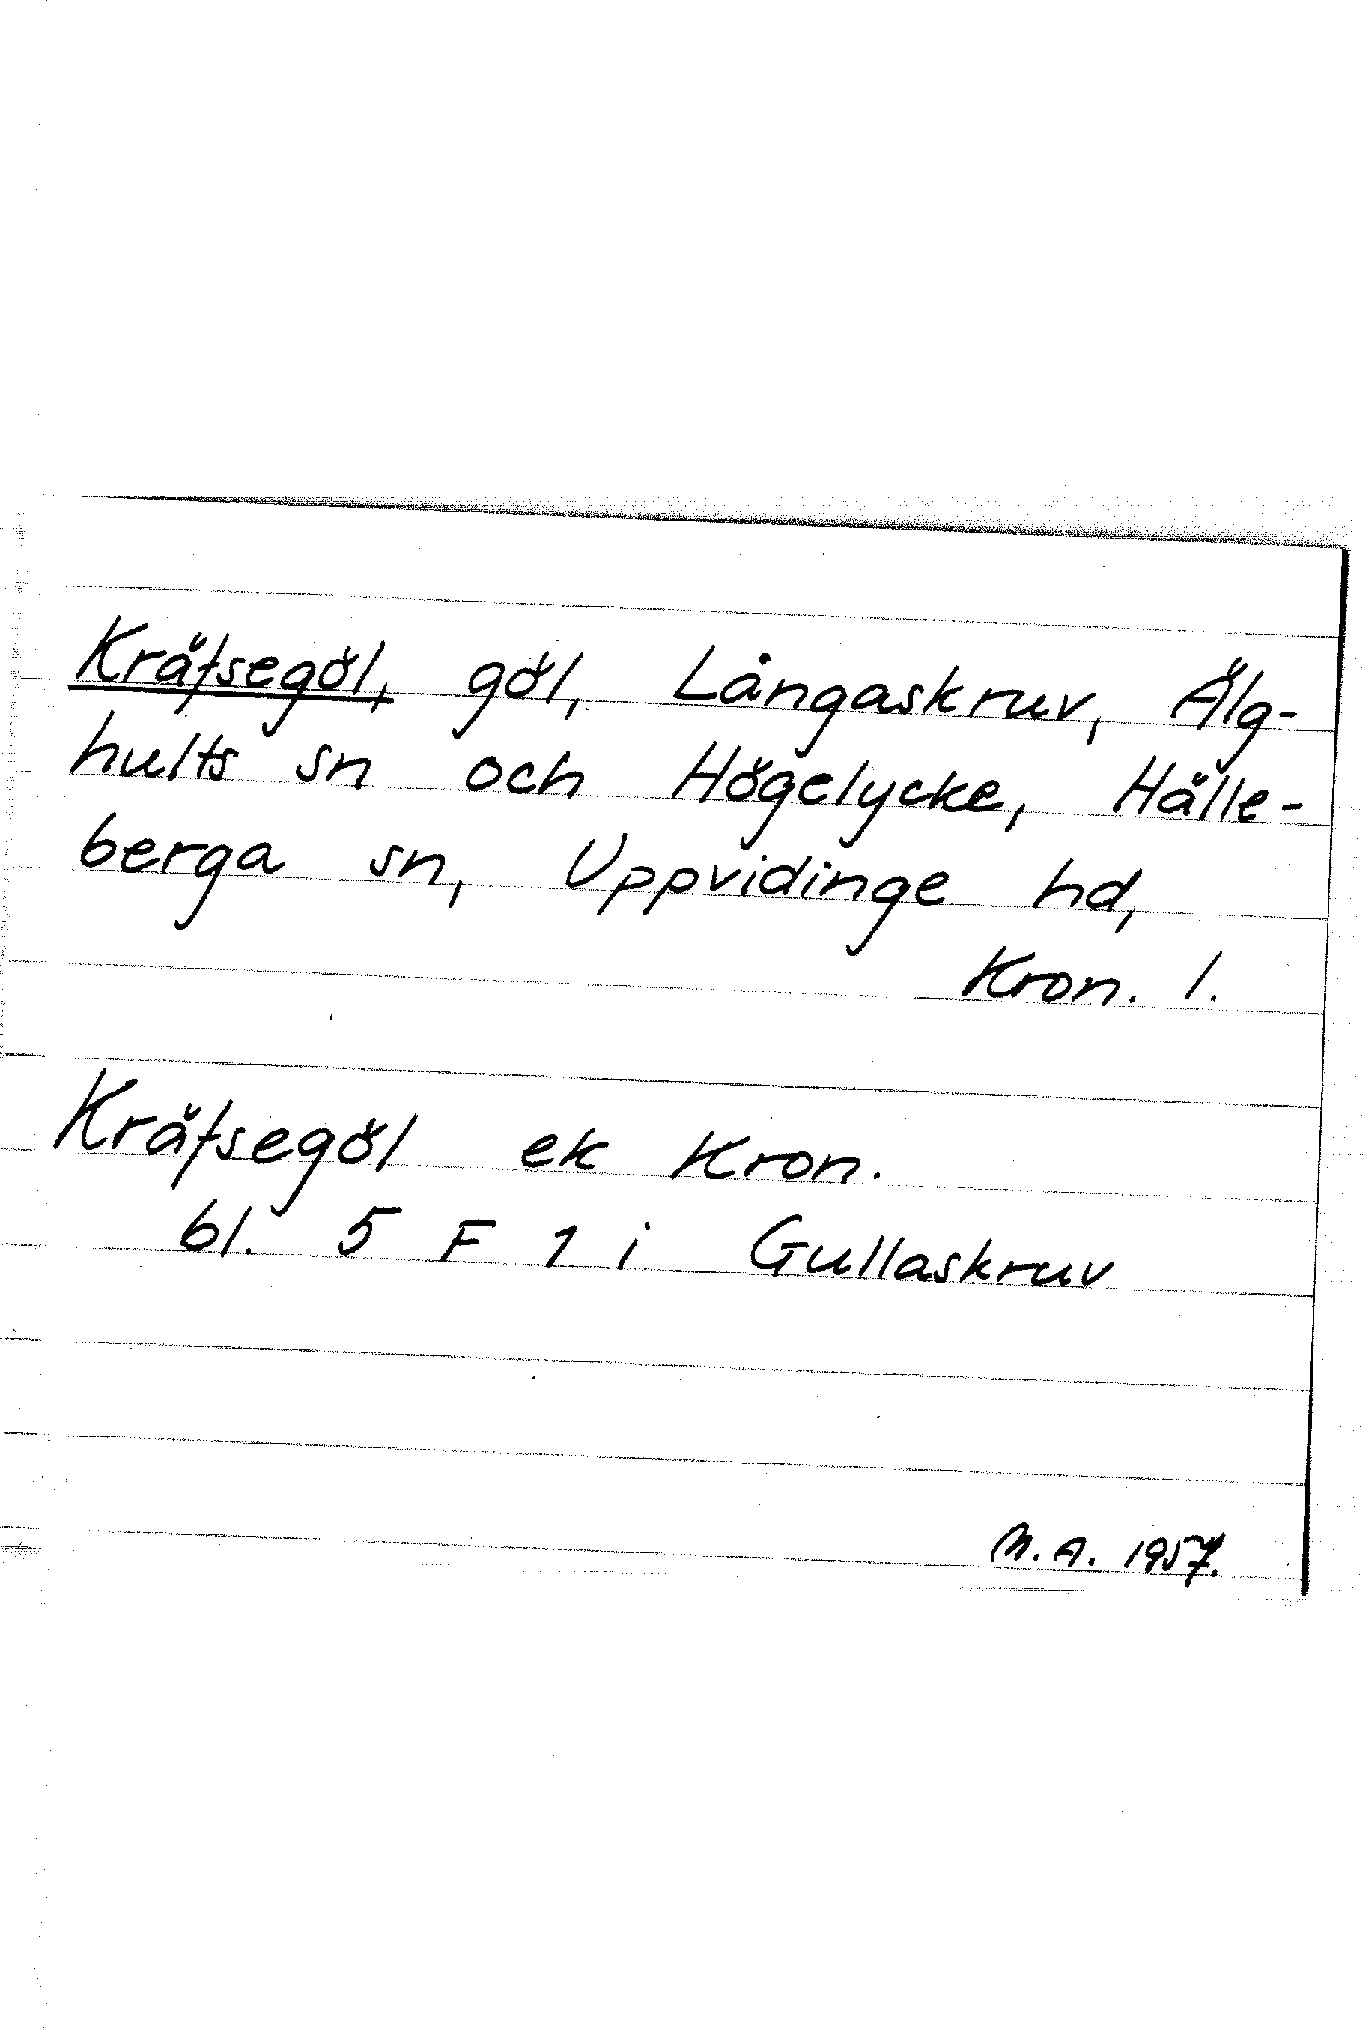 Kräfsegöl, göl, Långaskruv, Älg-
hults sn och Högelycke, Hälle-
berga sn, Uppvidinge hd,
Kron. l.
Kräfsegöl ek Kron.
bl. 5 F 1 i Gullaskruv
M.A. 1957.